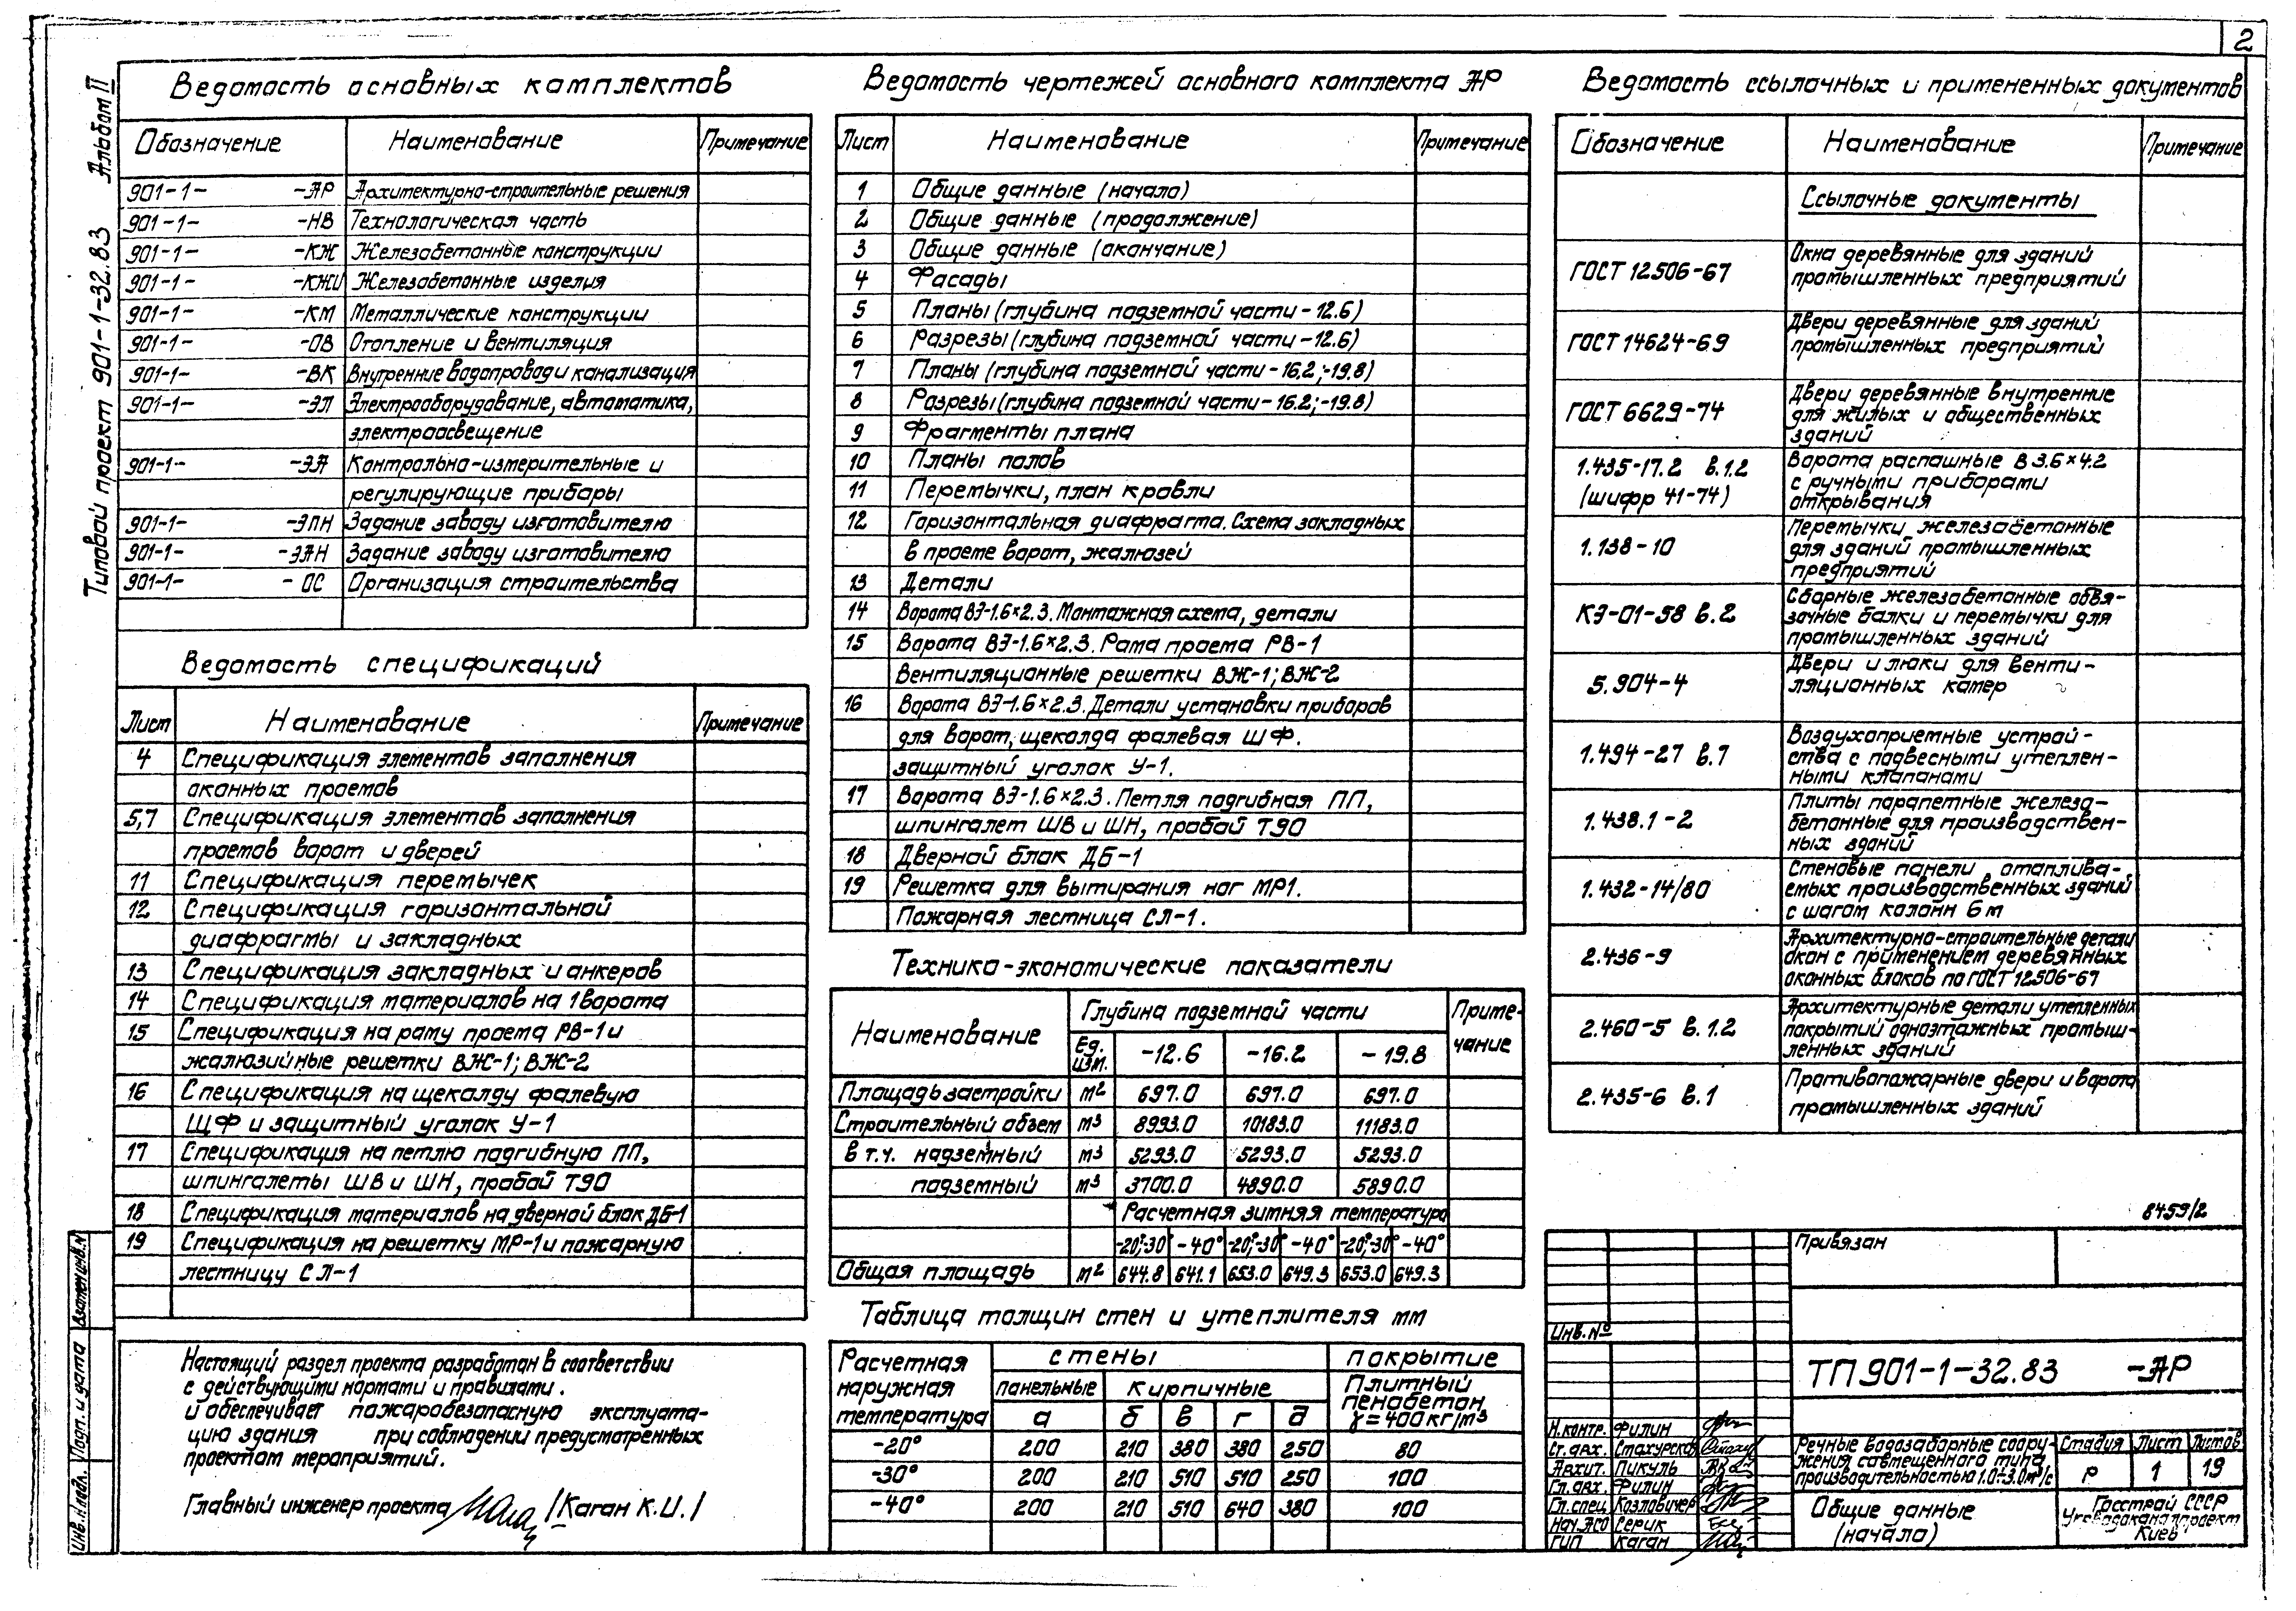 2
Типовой проект 901-1-32.83 Альбом II
Ведомость основных комплектов
Обозначение Наименование Примечание
901-1- -АР Архитектурно-строительные решения
901-1- -НВ Технологическая часть
901-1- -КЖ Железобетонные конструкции
901-1- -КЖИ Железобетонные изделия
901-1- -КМ Металлические конструкции
901-1- -ОВ Отопление и вентиляция
901-1- -ВК Внутренние водопровод и канализация
901-1- -ЭЛ Электрооборудование, автоматика,
электроосвещение
901-1- -ЭА Контрольно-измерительные и
регулирующие приборы
901-1- -ЭЛН Задание заводу изготовителю
901-1- -ЭАН Задание заводу изготовителю
901-1- - ОС Организация строительства
Ведомость спецификаций
Лист Наименование Примечание
4 Спецификация элементов заполнения
оконных проемов
5,7 Спецификация элементов заполнения
проемов ворот и дверей
11 Спецификация перемычек
12 Спецификация горизонтальной
диафрагмы и закладных
13 Спецификация закладных и анкеров
14 Спецификация материалов на 1 ворота
15 Спецификация на раму проема РВ-1 и
жалюзийные решетки ВЖ-1; ВЖ-2
16 Спецификация на щеколду фалевую
ЩФ и защитный уголок У-1
17 Спецификация на петлю подгибную ПП,
шпингалеты ШВ и ШН, пробой Т90
18 Спецификация материалов на дверной блок ДБ-1
19 Спецификация на решетку МР-1 и пожарную
лестницу СЛ-1
Настоящий раздел проекта разработан в соответствии
с действующими нормами и правилами.
и обеспечивает пожаробезопасную эксплуата-
цию здания при соблюдении предусмотренных
проектом мероприятий.
Главный инженер проекта /Каган К.И./
Ведомость чертежей основного комплекта АР
Лист Наименование Примечание
1 Общие данные (начало)
2 Общие данные (продолжение)
3 Общие данные (окончание)
4 Фасады
5 Планы (глубина подземной части -12.6)
6 Разрезы (глубина подземной части -12.6)
7 Планы (глубина подземной части -16.2; -19.8)
8 Разрезы (глубина подземной части -16.2; -19.8)
9 Фрагменты плана
10 Планы полов
11 Перемычки, план кровли
12 Горизонтальная диафрагма. Схема закладных
в проеме ворот, жалюзей
13 Детали
14 Ворота ВЭ-1.6×2.3. Монтажная схема, детали
15 Ворота ВЭ-1.6×2.3. Рама проема РВ-1
Вентиляционные решетки ВЖ-1; ВЖ-2
16 Ворота ВЭ-1.6×2.3. Детали установки приборов
для ворот, щеколда фалевая ШФ.
защитный уголок У-1.
17 Ворота ВЭ-1.6×2.3. Петля подгибная ПП,
шпингалет ШВ и ШН, пробой Т90
18 Дверной блок ДБ-1
19 Решетка для вытирания ног МР1.
Пожарная лестница СЛ-1.
Технико-экономические показатели
Наименование Глубина подземной части Приме-
чание
Ед. изм. -12.6 -16.2 -19.8
Площадь застройки м² 697.0 697.0 697.0
Строительный объем м³ 8993.0 10183.0 11183.0
в т.ч. надземный м³ 5293.0 5293.0 5293.0
подземный м³ 3700.0 4890.0 5890.0
Расчетная зимняя температура
-20°,-30° -40° -20°,-30° -40° -20°,-30° -40°
Общая площадь м² 644.8 641.1 653.0 649.3 653.0 649.3
Таблица толщин стен и утеплителя мм
Расчетная наружная температура стены покрытие
панельные кирпичные Плитный пенобетон γ=400кг/м³
а б в г д
-20° 200 210 380 380 250 80
-30° 200 210 510 510 250 100
-40° 200 210 510 640 380 100
Ведомость ссылочных и примененных документов
Обозначение Наименование Примечание
Ссылочные документы
ГОСТ 12506-67 Окна деревянные для зданий
промышленных предприятий
ГОСТ 14624-69 Двери деревянные для зданий
промышленных предприятий
ГОСТ 6629-74 Двери деревянные внутренние
для жилых и общественных
зданий
1.435-17.2 в.1.2 Ворота распашные В 3.6×4.2
с ручными приборами
(шифр 41-74) открывания
1.138-10 Перемычки железобетонные
для зданий промышленных
предприятий
КЭ-01-58 в.2 Сборные железобетонные обвя-
зочные балки и перемычки для
промышленных зданий
5.904-4 Двери и люки для венти-
ляционных камер
1.494-27 в.7 Воздухоприемные устрой-
ства с подвесными утеплен-
ными клапанами
1.438.1-2 Плиты парапетные железо-
бетонные для производствен-
ных зданий
1.432-14/80 Стеновые панели отаплива-
емых производственных зданий
с шагом колонн 6м
2.436-9 Архитектурно-строительные детали
окон с применением деревянных
оконных блоков по ГОСТ 12506-67
2.460-5 в.1.2 Архитектурные детали утепленных
покрытий одноэтажных промыш-
ленных зданий
2.435-6 в.1 Противопожарные двери и ворота
промышленных зданий
8459/2
Привязан
Инв.№
ТП 901-1-32.83 -АР
Н.контр. Филин
Ст.арх. Стахурская
Архит. Пикуль
Гл.арх. Филин
Гл.спец. Козлович
Нач.АСО Серик
ГИП Каган
Речные водозаборные соору-
жения совмещенного типа
производительностью 1.0÷3.0м³/с
Стадия Лист Листов
Р 1 19
Общие данные
(начало)
Госстрой СССР
Укрводоканалпроект
Киев
Инв.Н.подл. Подп. и дата Взамен инв.N